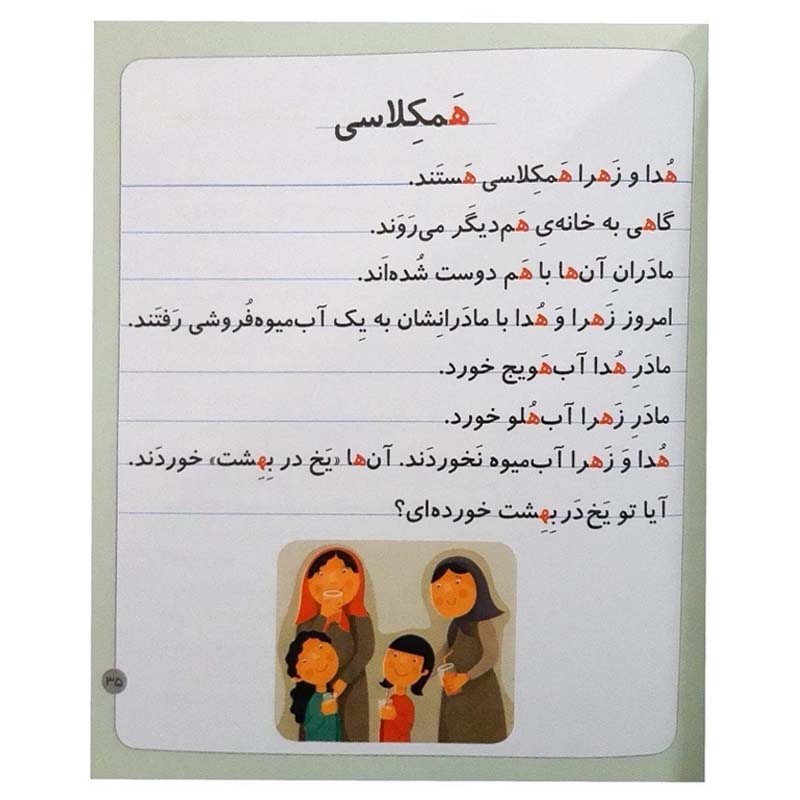 هَمکِلاسی
هُدا و زَهرا هَمکِلاسی هَستَند.
گاهی به خانه‌یِ هَم‌دیگَر می‌رَوَند.
مادَرانِ آن‌ها با هَم دوست شُده‌اَند.
اِمروز زَهرا وَ هُدا با مادَرانِشان به یِک آب‌میوه‌فُروشی رَفتَند.
مادَرِ هُدا آب‌هَویج خورد.
مادَرِ زَهرا آب‌هُلو خورد.
هُدا وَ زَهرا آب‌میوه نَخوردَند. آن‌ها «یَخ در بِهِشت» خوردَند.
آیا تو یَخ دَر بِهِشت خورده‌ای؟
۳۵